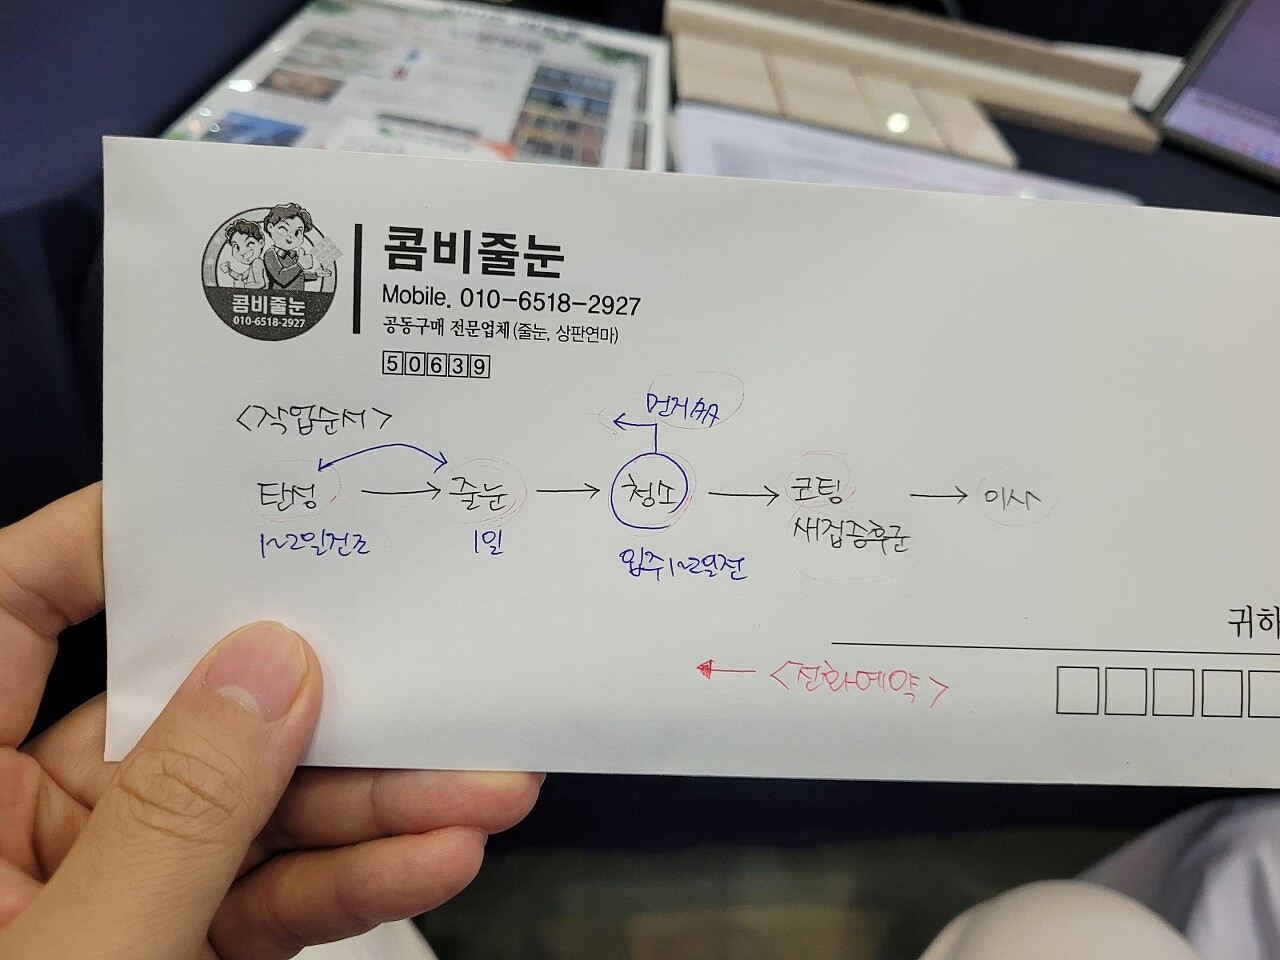 콤비줄눈
010-6518-2927
콤비줄눈
Mobile. 010-6518-2927
공동구매 전문업체(줄눈, 상판연마)
50639
<작업순서>
먼지
탄성 → 줄눈 → 청소 → 코팅 → 이사
새집증후군
1~2일건조 1일 입주1~2일전
귀하
<전화예약>